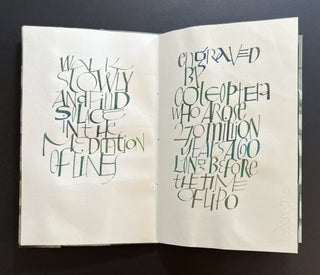 WALK
SLOWLY
AND FIND
SILENCE
IN THE
MEDITATION
OF LINES
ENGRAVED
BY
COLEOPTERA
WHO AROSE
270 MILLION
YEARS AGO
LONG BEFORE
THE TIME
OF LI PO